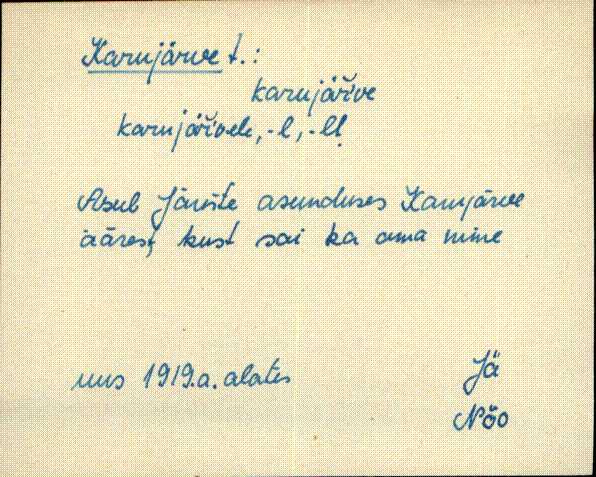 Karujärve t.:
karujäřve
karujäřvele, -l, -lt
Asub Järiste asunduses Karujärve
äärest, kust sai ka oma nime
uus 1919.a. alates
Jä
Nõo